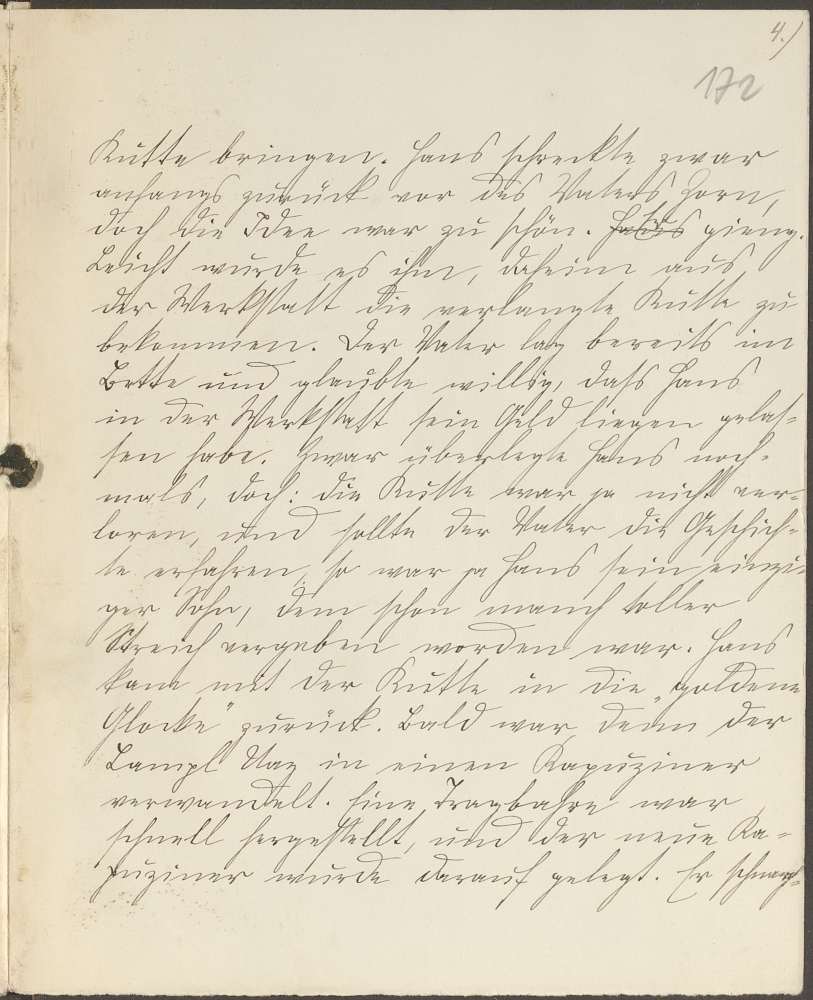 4.)
172
Kutte bringen. Hans schreckte zwar
anfangs zurück vor des Vaters Zorn,
doch die Idee war zu schön. Hans gieng.
Leicht wurde es ihm, daheim aus
der Werkstatt die verlangte Kutte zu
bekommen. Der Vater lag bereits im
Bette und glaubte willig, dass Hans
in der Werkstatt sein Geld liegen gelas-
sen habe. Zwar überlegte Hans noch-
mals, doch: die Kutte war ja nicht ver-
loren, und sollte der Vater die Geschich-
te erfahren, so war ja Hans sein einzi-
ger Sohn, dem schon manch toller
Streich vergeben worden war. Hans
kam mit der Kutte in die „goldene
Glocke" zurück. Bald war denn der
Lampl Naz in einen Kapuziner
verwandelt. Eine Tragbahre war
schnell hergestellt, und der neue Ka-
puziner wurde darauf gelegt. Er schnarch-